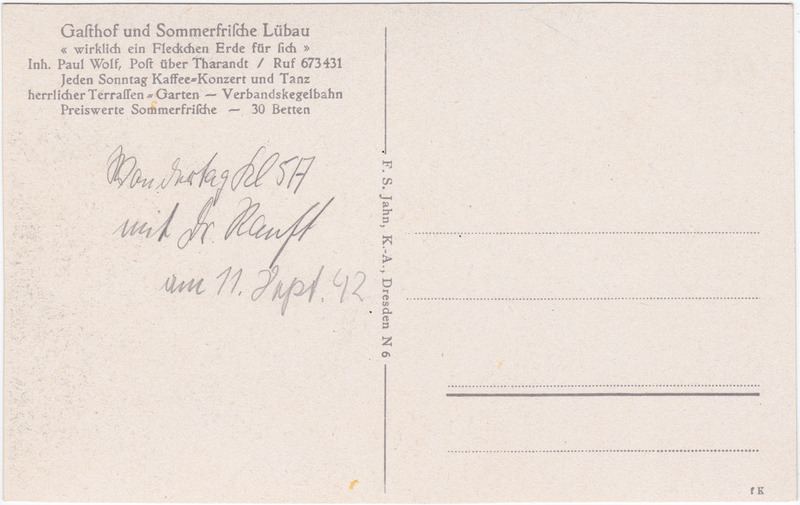 Gaſthof und Sommerfriſche Lübau
« wirklich ein Fleckchen Erde für ſich »
Inh. Paul Wolf, Poſt über Tharandt / Ruf 673431
Jeden Sonntag Kaffee=Konzert und Tanz
herrlicher Terraſſen=Garten — Verbandskegelbahn
Preiswerte Sommerfriſche — 30 Betten
Wandertag Kl 5A
mit Dr. Ranft
am 11. Sept. 42
F. S. Jahn, K.-A., Dresden N 6
f K